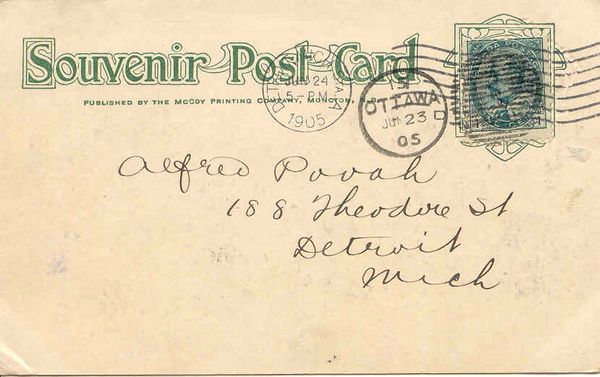 Souvenir Post Card
PUBLISHED BY THE MCCOY PRINTING COMPANY, MONCTON,
JUN 24
5-PM
1905
OTTAWA
JUN 23
05
Alfred Povah
188 Theodore St
Detroit
Mich